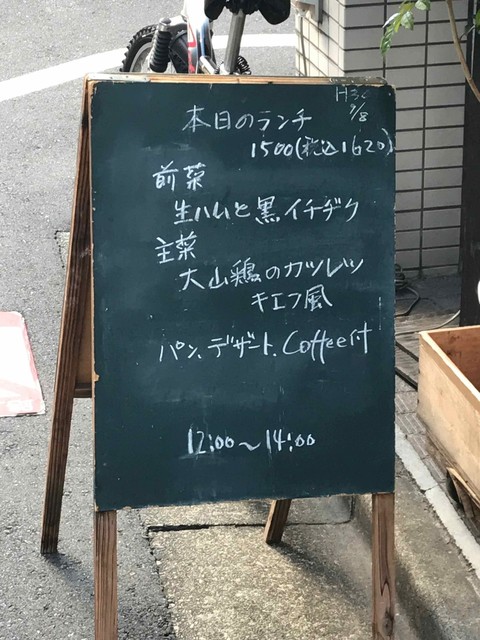 H30
9/8
本日のランチ
1500(税込1620)
前菜
生ハムと黒イチヂク
主菜
大山鶏のカツレツ
キエフ風
パン、デザート、Coffee付
12:00～14:00